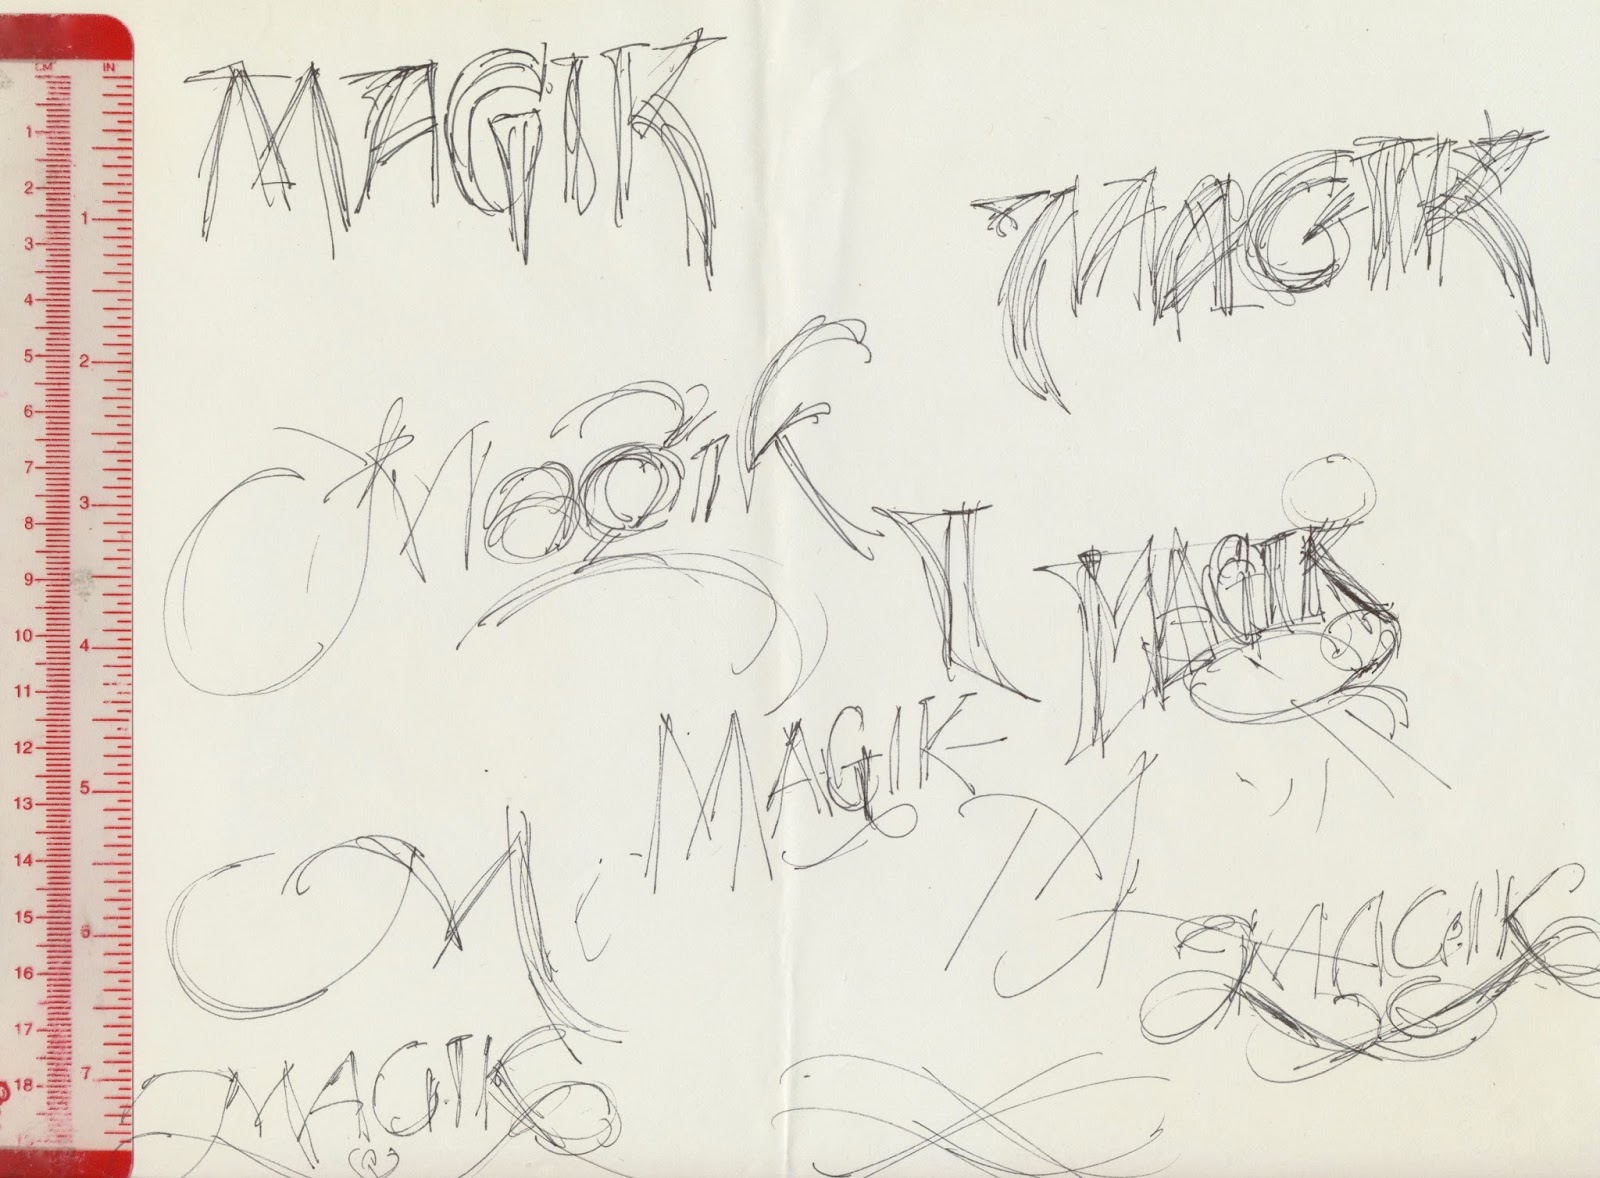 CM IN
1
2
3
4
5
6
7
8
9
10
11
12
13
14
15
16
17
18
1
2
3
4
5
6
7
MAGIK
MAGIK
Magik
MAGIK
MAGIK
M
MAGIK
MAGIK